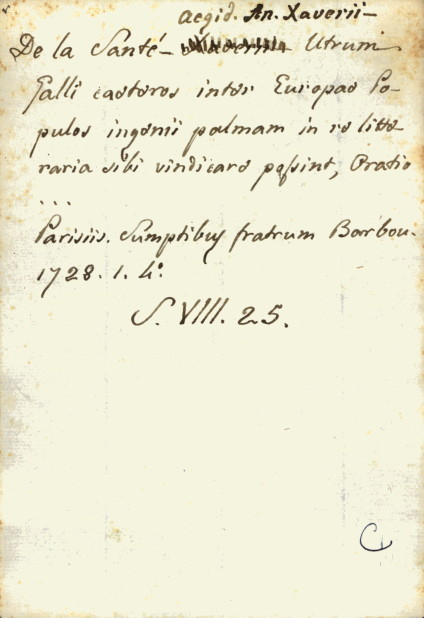 Aegid. An. Xaverii-
De la Santé - Utrum
Galli caeteros inter Europae Po-
pulos ingenii palmam in re litte
raria sibi vindicare possint, Oratio
...
Parisiis. Sumptibus fratrum Barbou.
1728. 1. 4°.
S. VIII. 25.
C